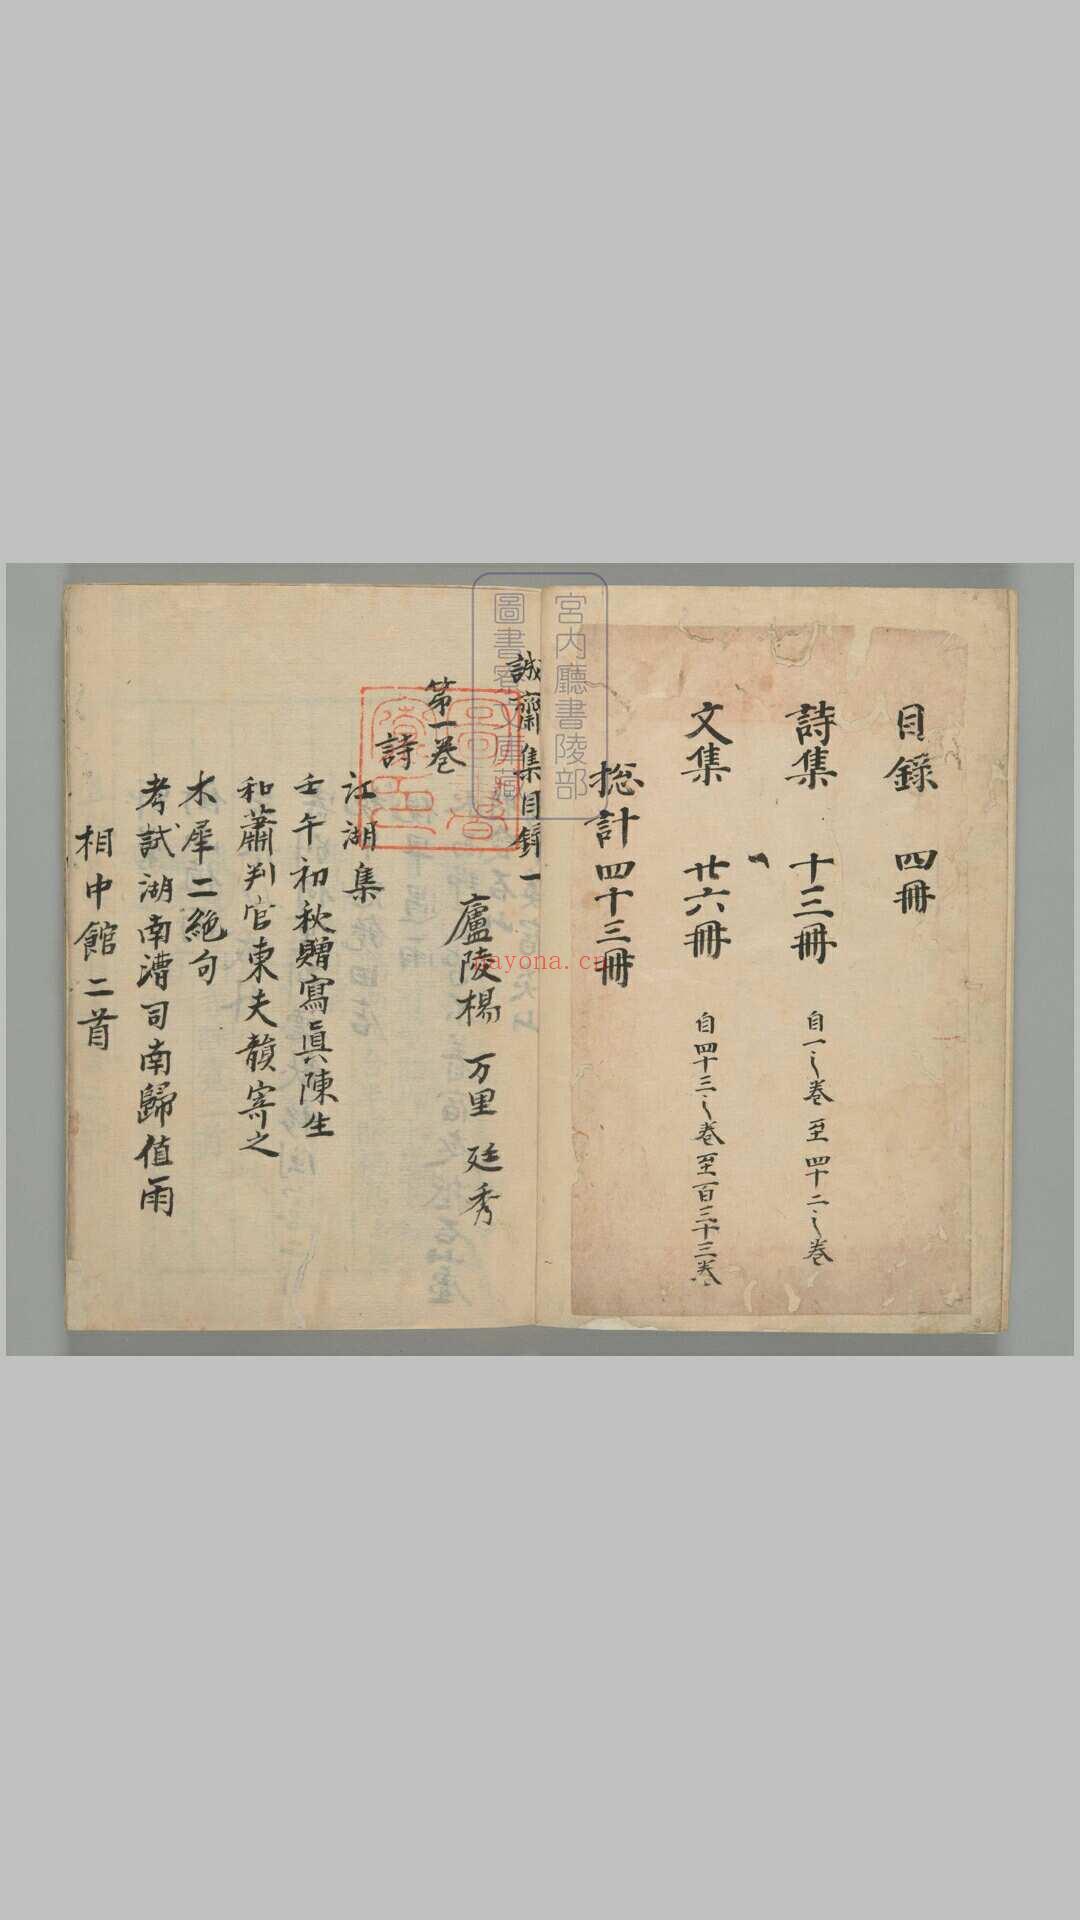 目録 四冊
詩集 十三冊 自一之巻至四十二之巻
文集 廿六冊 自四十三之巻至百三十三巻
捴計四十三冊
誠齋集目録一
廬陵楊 万里 廷秀
第一巻
詩
江湖集
壬午初秋贈寫眞陳生
和蕭判官東夫韻寄之
木犀二絶句
考試湖南漕司南歸值雨
相中館二首
宮内廳書陵部
圖書寮文庫藏
nayona.cn